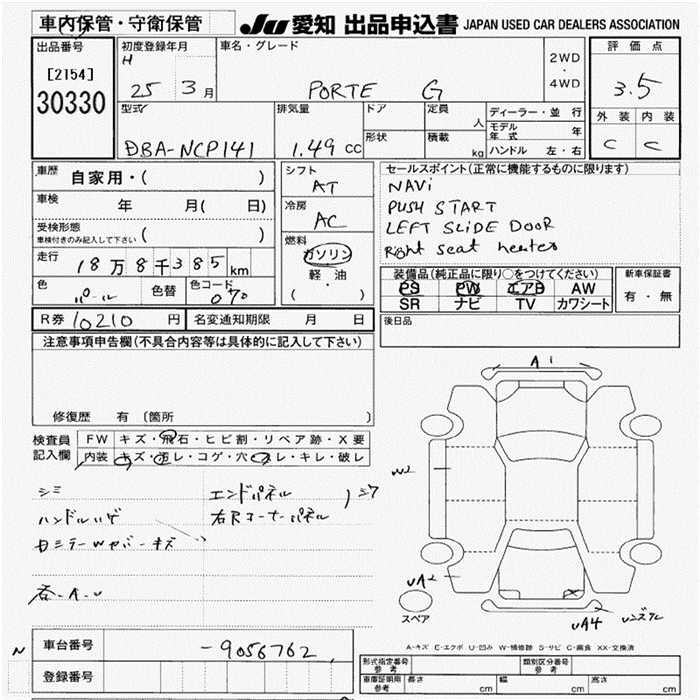 車内保管・守衛保管
JU 愛知 出品申込書 JAPAN USED CAR DEALERS ASSOCIATION
出品番号
[2154]
30330
初度登録年月
H
25 3月
車名・グレード
PORTE G
2WD
・
4WD
評価点
3.5
外装 内装
C C
型式
DBA-NCP141
排気量
1.49 cc
ドア
形状
定員
人
積載
kg
ディーラー・並行
モデル年式 年
ハンドル 左・右
車歴
自家用・( )
車検
年 月( 日)
受検形態
車検付きのみ記入して下さい ( )
走行
18万8千385km
色
パール
色替
色コード
070
シフト
AT
冷房
AC
燃料
ガソリン
軽・油
( )
セールスポイント(正常に機能するものに限ります)
NAVi
PUSH START
LEFT SLIDE DOOR
Right seat heater
装備品(純正品に限り○をつけてください)
PS PW エアB AW
SR ナビ TV カワシート
新車保証書
有・無
R券 10210 円
名変通知期限 月 日
後日品
注意事項申告欄(不具合内容等は具体的に記入して下さい)
修復歴 有 〔箇所 〕
検査員記入欄
FW キズ・飛石・ヒビ割・リペア跡・X要
内装 キズ・汚レ・コゲ・穴・スレ・キレ・破レ
シミ
エンドパネル
ハンドルハゲ
右Rコーナーパネル
キズ
A-U
A1
UA2
UA4
スペア
A-キズ E-エクボ U-凹み W-補修跡 S-サビ C-腐食 XX-交換済
N
車台番号
-9056762
登録番号
形式指定番号 参考
類別区分番号 参考
車庫証明用 参考
長さ cm
幅 cm
高さ cm